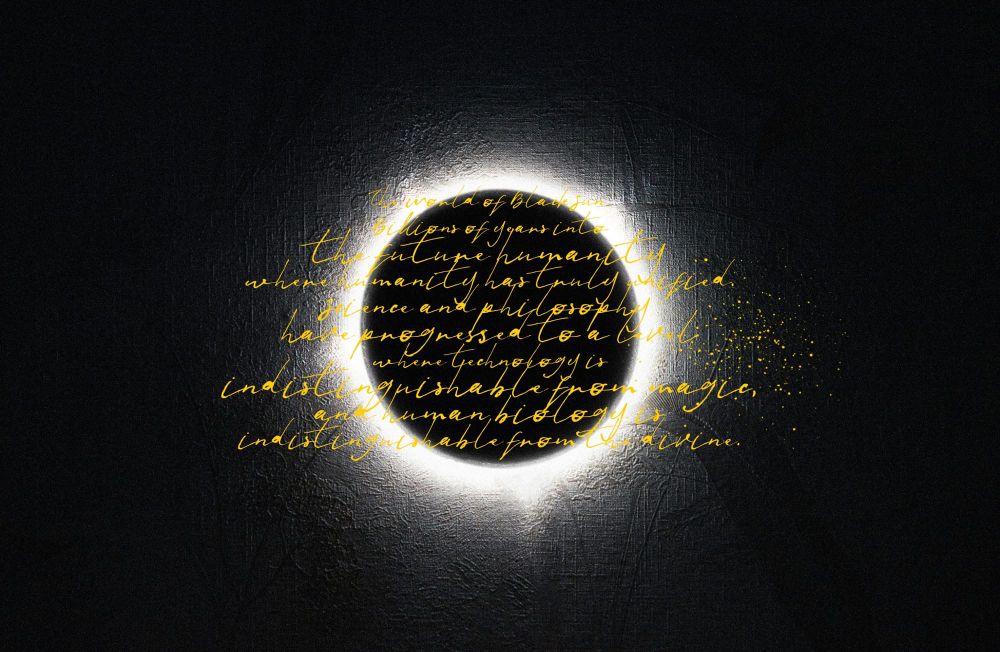 The world of Blacksun
Billions of years into
the future humanity
where humanity has truly unified.
Science and philosophy
have progressed to a level,
where technology is
indistinguishable from magic,
and human biology is
indistinguishable from the divine.